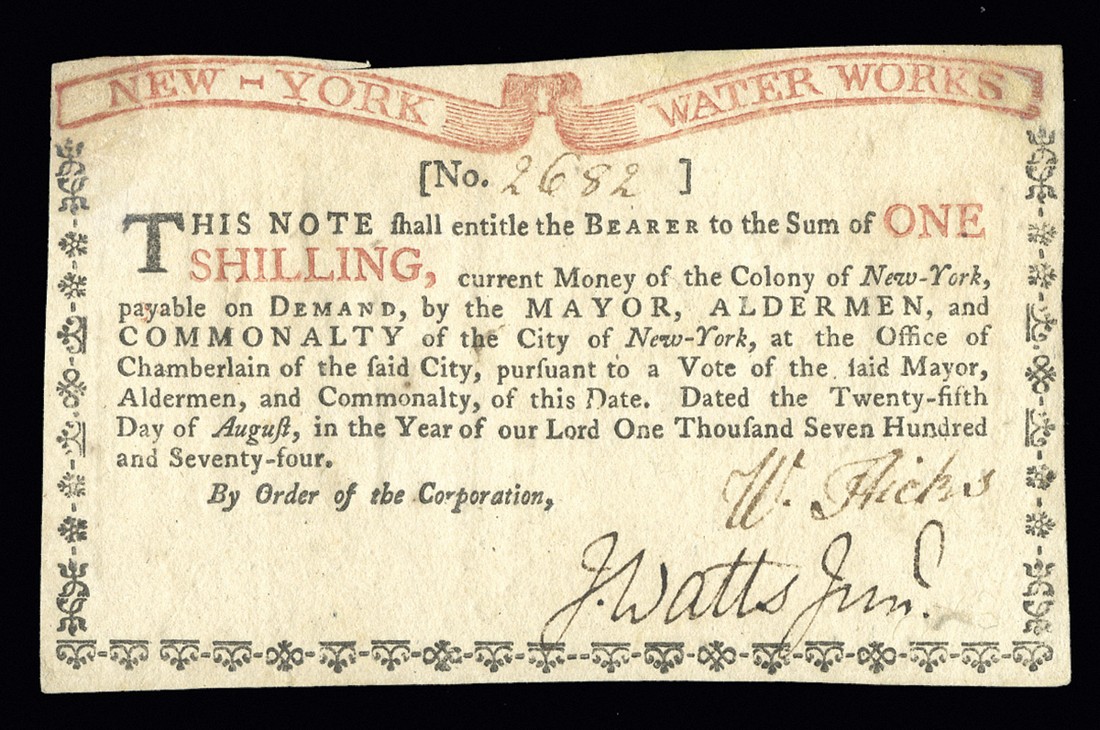 NEW-YORK WATER WORKS
[No. 2682 ]
THIS NOTE ſhall entitle the BEARER to the Sum of ONE
SHILLING, current Money of the Colony of New-York,
payable on DEMAND, by the MAYOR, ALDERMEN, and
COMMONALTY of the City of New-York, at the Office of
Chamberlain of the ſaid City, purſuant to a Vote of the ſaid Mayor,
Aldermen, and Commonalty, of this Date. Dated the Twenty-fifth
Day of Auguſt, in the Year of our Lord One Thouſand Seven Hundred
and Seventy-four.
By Order of the Corporation,
W. Hicks
J. Watts Junr.